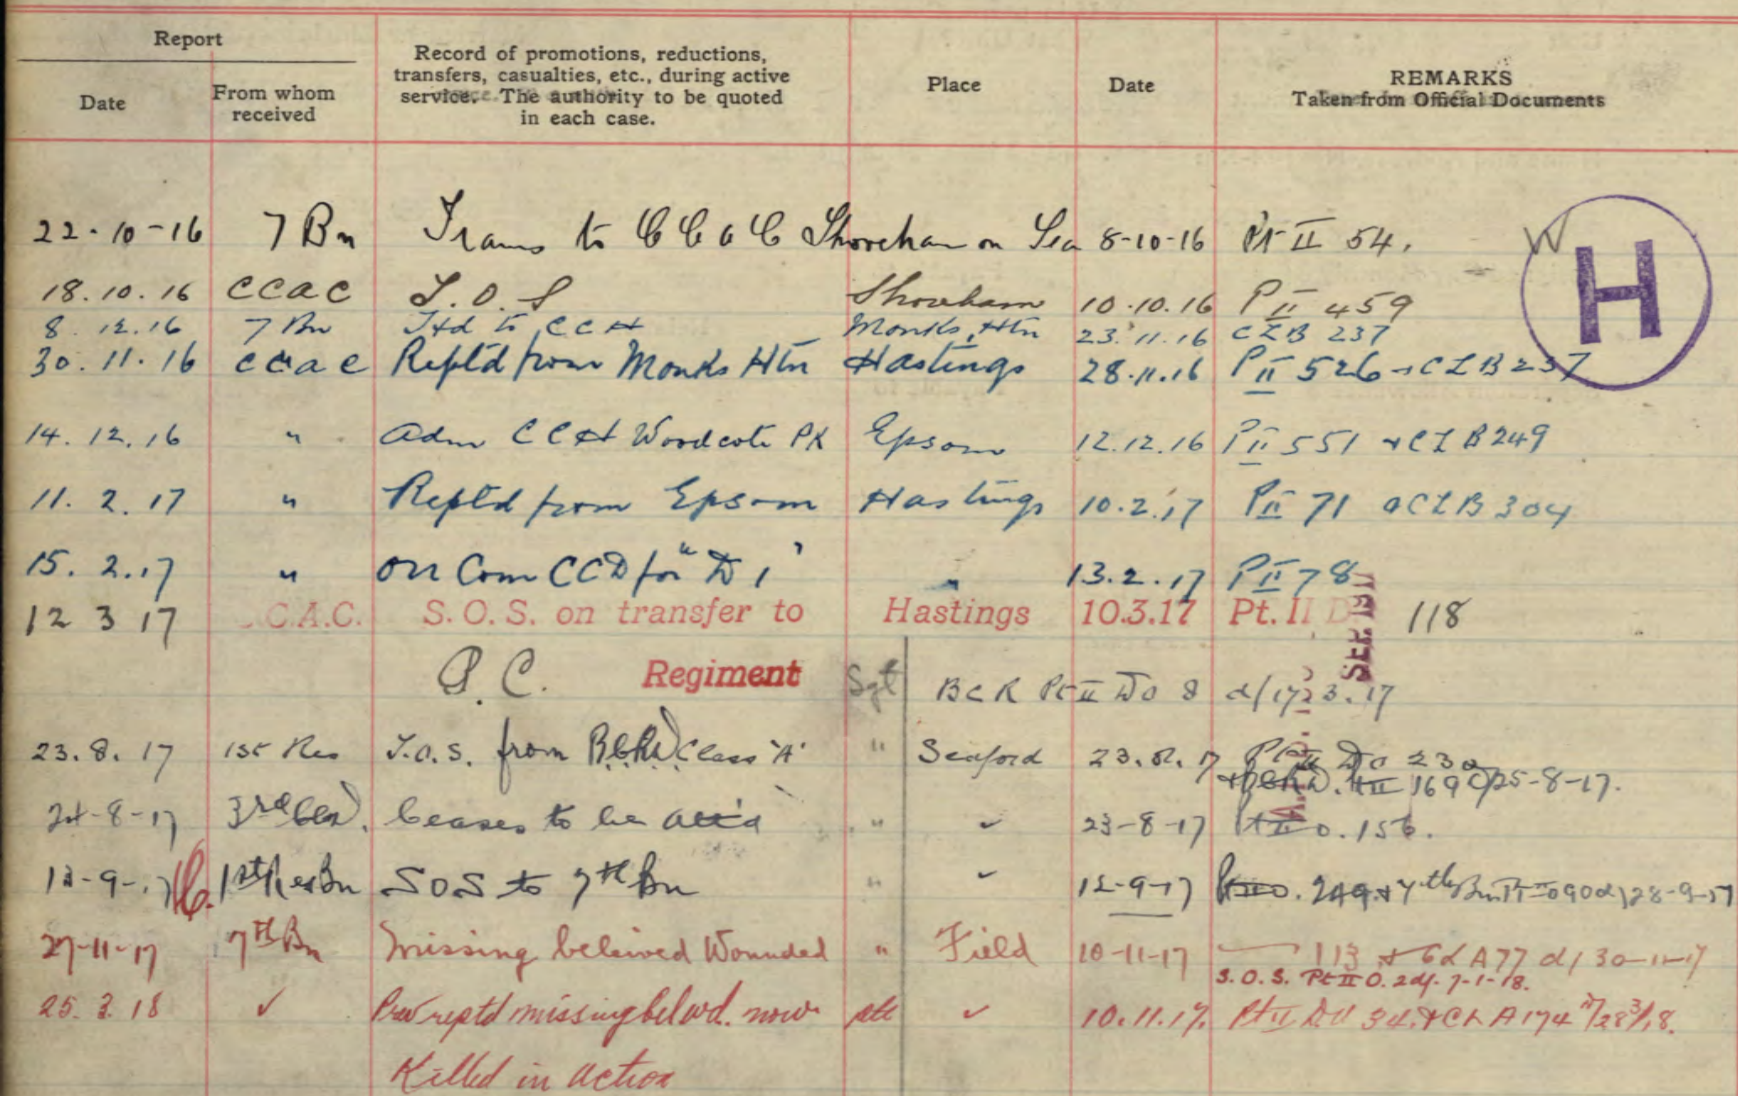 Report
Date
From whom received
Record of promotions, reductions,
transfers, casualties, etc., during active
service. The authority to be quoted
in each case.
Place
Date
REMARKS
Taken from Official Documents
22-10-16 7 Bn Trans to CCAC Shoreham on Sea 8-10-16 Pt II 54.
W
H
18.10.16 CCAC T.O.S Shoreham 10.10.16 P II 459
8.12.16 7 Bn Tfd to CCH Monks Htn 23.11.16 CLB 237
30.11.16 CCAC Reptd from Monks Htn Hastings 28.11.16 P II 526 + CLB 237
14.12.16 " Adm CCH Woodcote Pk Epsom 12.12.16 P II 551 + CLB 249
11.2.17 " Reptd from Epsom Hastings 10.2.17 P II 71 CLB 304
15.2.17 " On Com CCD for "D 1" " 13.2.17 P II 78
12 3 17 C.A.C. S.O.S. on transfer to Hastings 10.3.17 Pt. II D 118
B.C. Regiment Sgt BCR Pt II DO 8 d/17.3.17
SEP 1917
23.8.17 1st Res T.O.S. from B.C.R.D. Class 'A' " Seaford 23.8.17 Pt II DO 230
+ BCRD. Pt II 169 d/25-8-17.
24-8-17 3rd Ceases to be att'd " ✓ 23-8-17 Pt II O. 156.
12-9-17 1st Res Bn SOS to 7th Bn " ✓ 12-9-17 Pt II O. 249 + 7th Bn Pt II O 90 d/28-9-17
27-11-17 7th Bn Missing beleived Wounded " Field 10-11-17 — 113 + Cd A77 d/ 30-11-17
S.O.S. Pt II O. 2 d/. 7-1-18.
25.3.18 ✓ Prev reptd missing belwd. now ✓ 10.11.17. Pt II DO 34. + CL A174
Killed in action